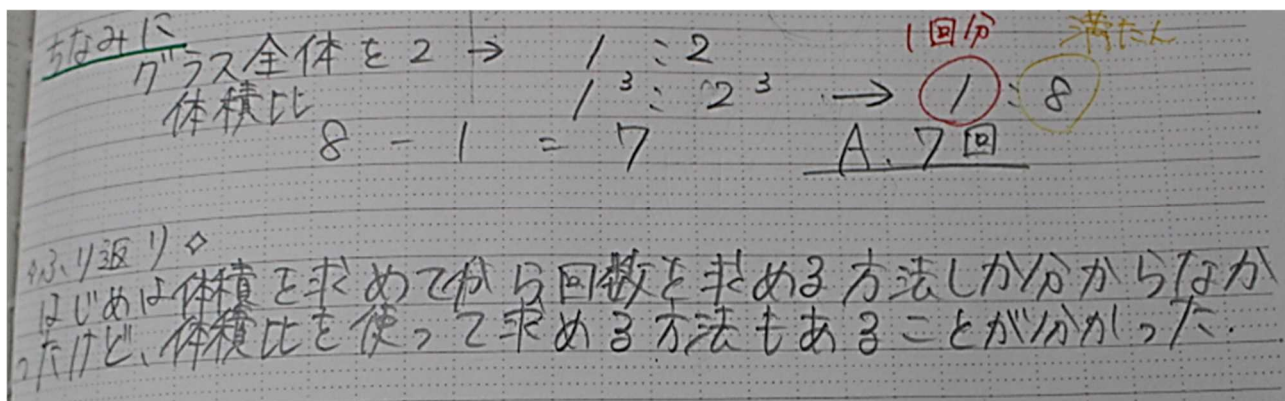 ちなみに
グラス全体を2 → 1:2
1回分 満たん
体積比 1³:2³ → 1:8
8 - 1 = 7 A. 7回
ふり返り◇
はじめは体積を求めてから回数を求める方法しか分からなか
ったけど、体積比を使って求める方法もあることが分かった.